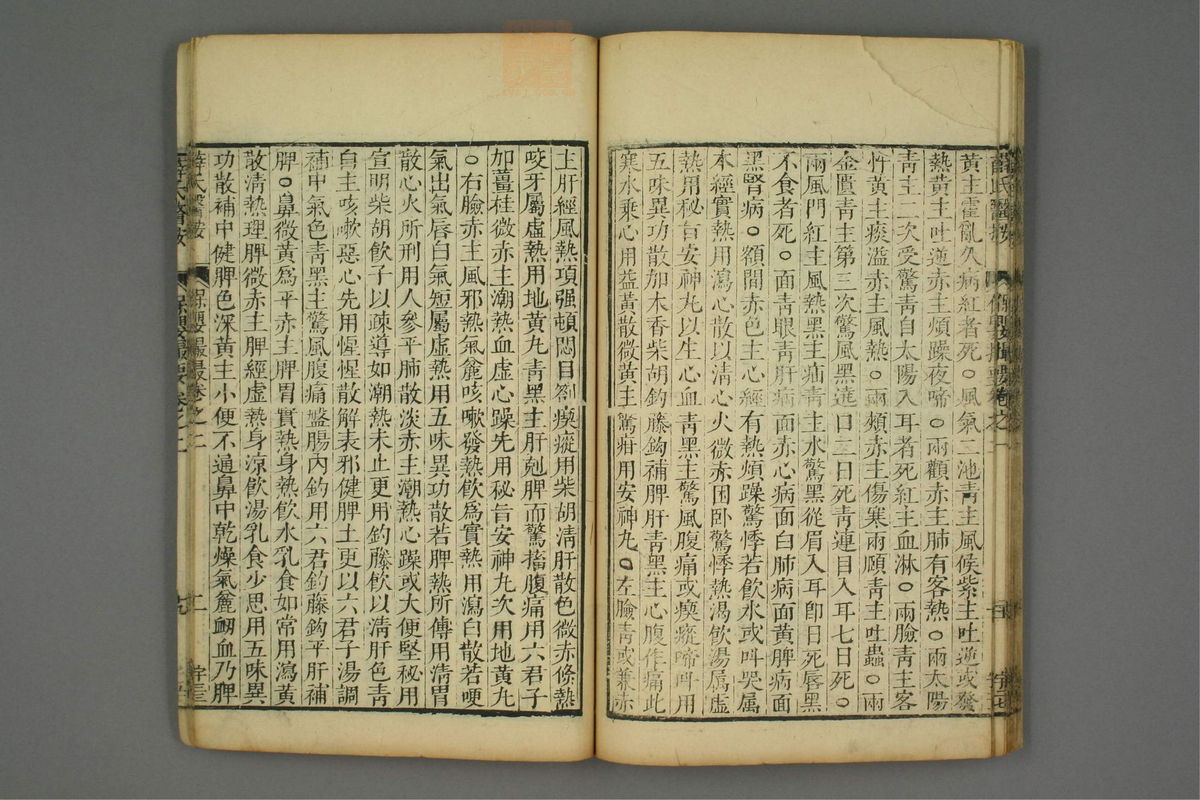 黃主霍亂久病紅者死○風氣二池靑主風候紫主吐逆或發
熱黃主吐逆赤主煩躁夜啼○兩顴赤主肺有客熱○兩太陽
靑主二次受驚靑自太陽入耳者死紅主血淋○兩臉靑主客
忤黃主痰溢赤主風熱○兩頰赤主傷寒兩頤靑主吐蟲○兩
金匱靑主第三次驚風黑遶口三日死靑連目入耳七日死○
兩風門紅主風熱黑主疝靑主水驚黑從眉入耳卽日死唇黑
不食者死○面靑眼靑肝病面赤心病面白肺病面黃脾病面
黑腎病○額間赤色主心經有熱煩躁驚悸若飲水或叫哭屬
本經實熱用瀉心散以淸心火微赤困卧驚悸熱渴飲湯屬虛
熱用秘旨安神丸以生心血靑黑主驚風腹痛或瘈瘲啼叫用
五味異功散加木香柴胡鈎藤鈎補脾肝靑黑主心腹作痛此
寒水乘心用益黃散微黃主驚疳用安神丸○左臉靑或兼赤
主肝經風熱項强頓悶目劄瘈瘲用柴胡淸肝散色微赤倏熱
咬牙屬虛熱用地黃丸靑黑主肝剋脾而驚搐腹痛用六君子
加薑桂微赤主潮熱血虛心躁先用秘旨安神丸次用地黃丸
○右臉赤主風邪熱氣麄咳嗽發熱飲爲實熱用瀉白散若哽
氣出氣唇白氣短屬虛熱用五味異功散若脾熱所傳用淸胃
散心火所刑用人參平肺散淡赤主潮熱心躁或大便堅秘用
宣明柴胡飲子以疎導如潮熱未止更用鈞藤飲以淸肝色靑
白主咳嗽惡心先用惺惺散解表邪健脾土更以六君子湯調
補中氣色靑黑主驚風腹痛盤腸內釣用六君鈞藤鈎平肝補
脾○鼻微黃爲平赤主脾胃實熱身熱飲水乳食如常用瀉黃
散淸熱理脾微赤主脾經虛熱身涼飲湯乳食少思用五味異
功散補中健脾色深黃主小便不通鼻中乾燥氣麄衂血乃脾
薛氏醫按
保嬰撮要卷之二